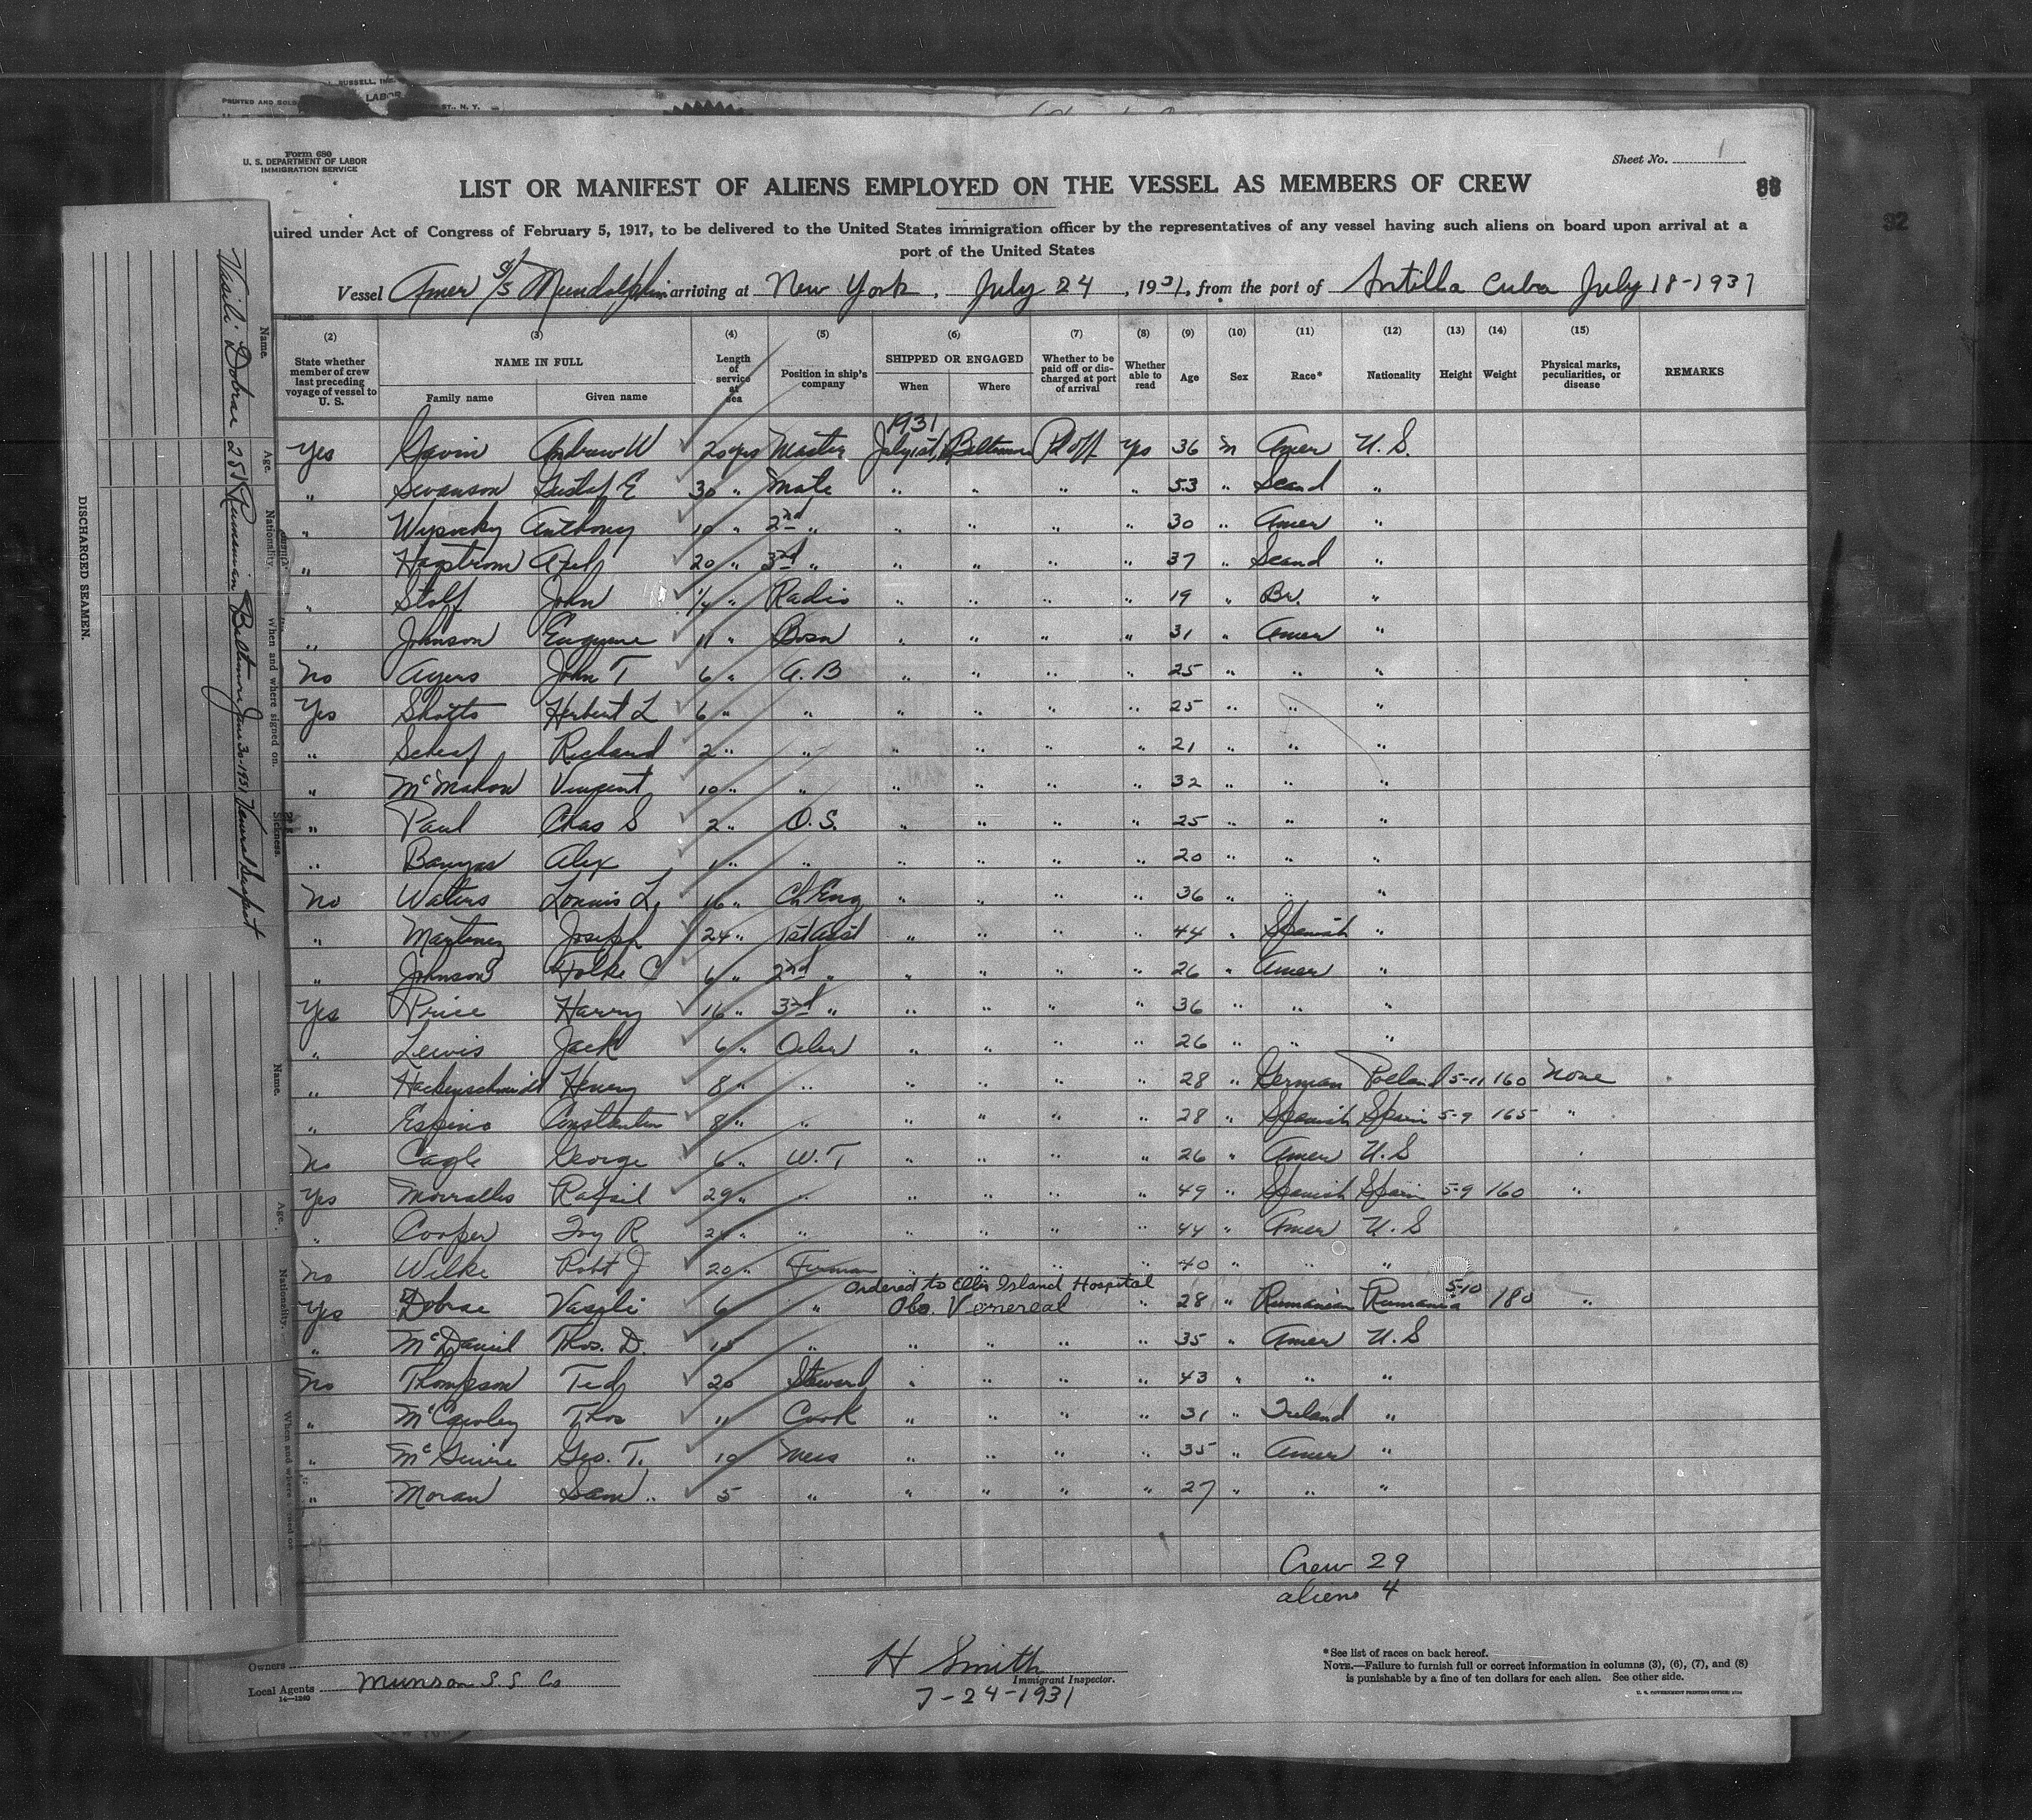 L. RUSSELL, INC.
PRINTED AND SOLD
LABOR
ST., N. Y.
Form 680
U. S. DEPARTMENT OF LABOR
IMMIGRATION SERVICE
Sheet No. 1
LIST OR MANIFEST OF ALIENS EMPLOYED ON THE VESSEL AS MEMBERS OF CREW
88
92
uired under Act of Congress of February 5, 1917, to be delivered to the United States immigration officer by the representatives of any vessel having such aliens on board upon arrival at a
port of the United States
Vessel Amer S/S Mundelphin arriving at New York, July 24, 1931, from the port of Antilla Cuba July 18-1931
(2) (3) (4) (5) (6) (7) (8) (9) (10) (11) (12) (13) (14) (15)
State whether member of crew last preceding voyage of vessel to U. S.
NAME IN FULL
Family name Given name
Length of service at sea
Position in ship's company
SHIPPED OR ENGAGED
When Where
Whether to be paid off or discharged at port of arrival
Whether able to read
Age Sex Race* Nationality Height Weight
Physical marks, peculiarities, or disease
REMARKS
1931
Yes Gavin Andrew W 20 yrs Master July 1st Baltimore Pd off Yes 36 m Amer U.S.
" Swanson Gustaf E 30 " Mate " " " " 53 " Scand "
" Wysocky Anthony 10 " 2nd " " " " " 30 " Amer "
" Hagstrom Axel 20 " 3rd " " " " " 37 " Scand "
" Stolf John " Radio " " " " 19 " Br. "
" Johnson Eugene 11 " Bosn " " " " 31 " Amer "
No Ayers John T 6 " A.B " " " " 25 " " "
Yes Shotts Herbert L 6 " " " " " " 25 " " "
" Scheaf Richard 2 " " " " " " 21 " " "
" McMahon Vincent 10 " " " " " " 32 " " "
" Paul Chas S 2 " O.S. " " " " 25 " " "
" Banyas Alex 1 " " " " " " 20 " " "
No Waters Lonnis L. 16 " Ch Eng " " " " 36 " " "
" Martinez Joseph 24 " 1st Asst " " " " 44 " Spanish "
" Johnson Folke C 6 " 2nd " " " " " 26 " Amer "
Yes Price Harry 16 " 3rd " " " " " 36 " " "
" Lewis Jack 6 " Oiler " " " " 26 " " "
" Hackenschmidt Henry 8 " " " " " " 28 " German Poland 5-11 160 None
" Espino Constantin 8 " " " " " " 28 " Spanish Spain 5-9 165 "
No Cagle George 6 " W.T " " " " 26 " Amer U.S
Yes Morralles Rafail 29 " " " " " " 49 " Spanish Spain 5-9 160 "
" Cooper Ivy R " " " " " " 44 " Amer U.S
No Wilke Robt J 20 " Fireman " " " " 40 " " "
Ordered to Ellis Island Hospital
Yes Dobrae Vasili 6 " Obs. Venereal " 28 " Rumanian Rumania 5-10 180 "
" McDaniel Thos. D. 15 " " " " " 35 " Amer U.S
No Thompson Ted 20 Steward " " " " 43 " " "
" McCawley Thos 11 Cook " " " " 31 " Ireland "
" McGuire Geo. T. 10 Mess " " " " 35 " Amer "
" Moran Sam " 5 " " " " " 27 " " "
Crew 29
aliens 4
Owners
Local Agents Munson S.S. Co
14—1240
H Smith
Immigrant Inspector.
7-24-1931
*See list of races on back hereof.
NOTE.—Failure to furnish full or correct information in columns (3), (6), (7), and (8)
is punishable by a fine of ten dollars for each alien. See other side.
U. S. GOVERNMENT PRINTING OFFICE
DISCHARGED SEAMEN.
Name. Age. Nationality. When and where signed on. Sickness.
Vasili Dobrae 28 Rumanian Baltimore June 30-1931 Veneral Suspect
Name. Age. Nationality. When and where signed on